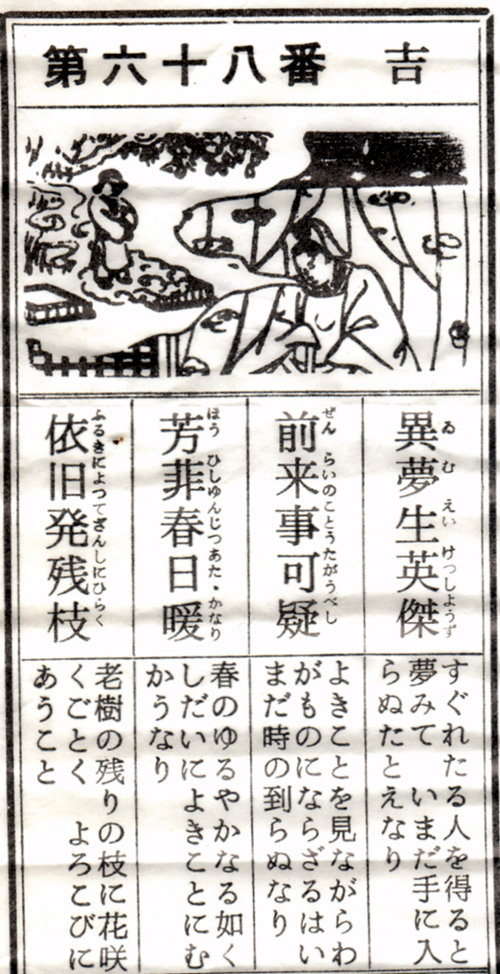 第六十八番 吉
異夢生英傑
ゐむえいけつしようず
前来事可疑
ぜんらいのことうたがうべし
芳菲春日暖
ほうひしゆんじつあた・かなり
依旧発残枝
ふるきによつてざんしにひらく
すぐれたる人を得ると
夢みて いまだ手に入
らぬたとえなり
よきことを見ながらわ
がものにならざるはい
まだ時の到らぬなり
春のゆるやかなる如く
しだいによきことにむ
かうなり
老樹の残りの枝に花咲
くごとく よろこびに
あうこと